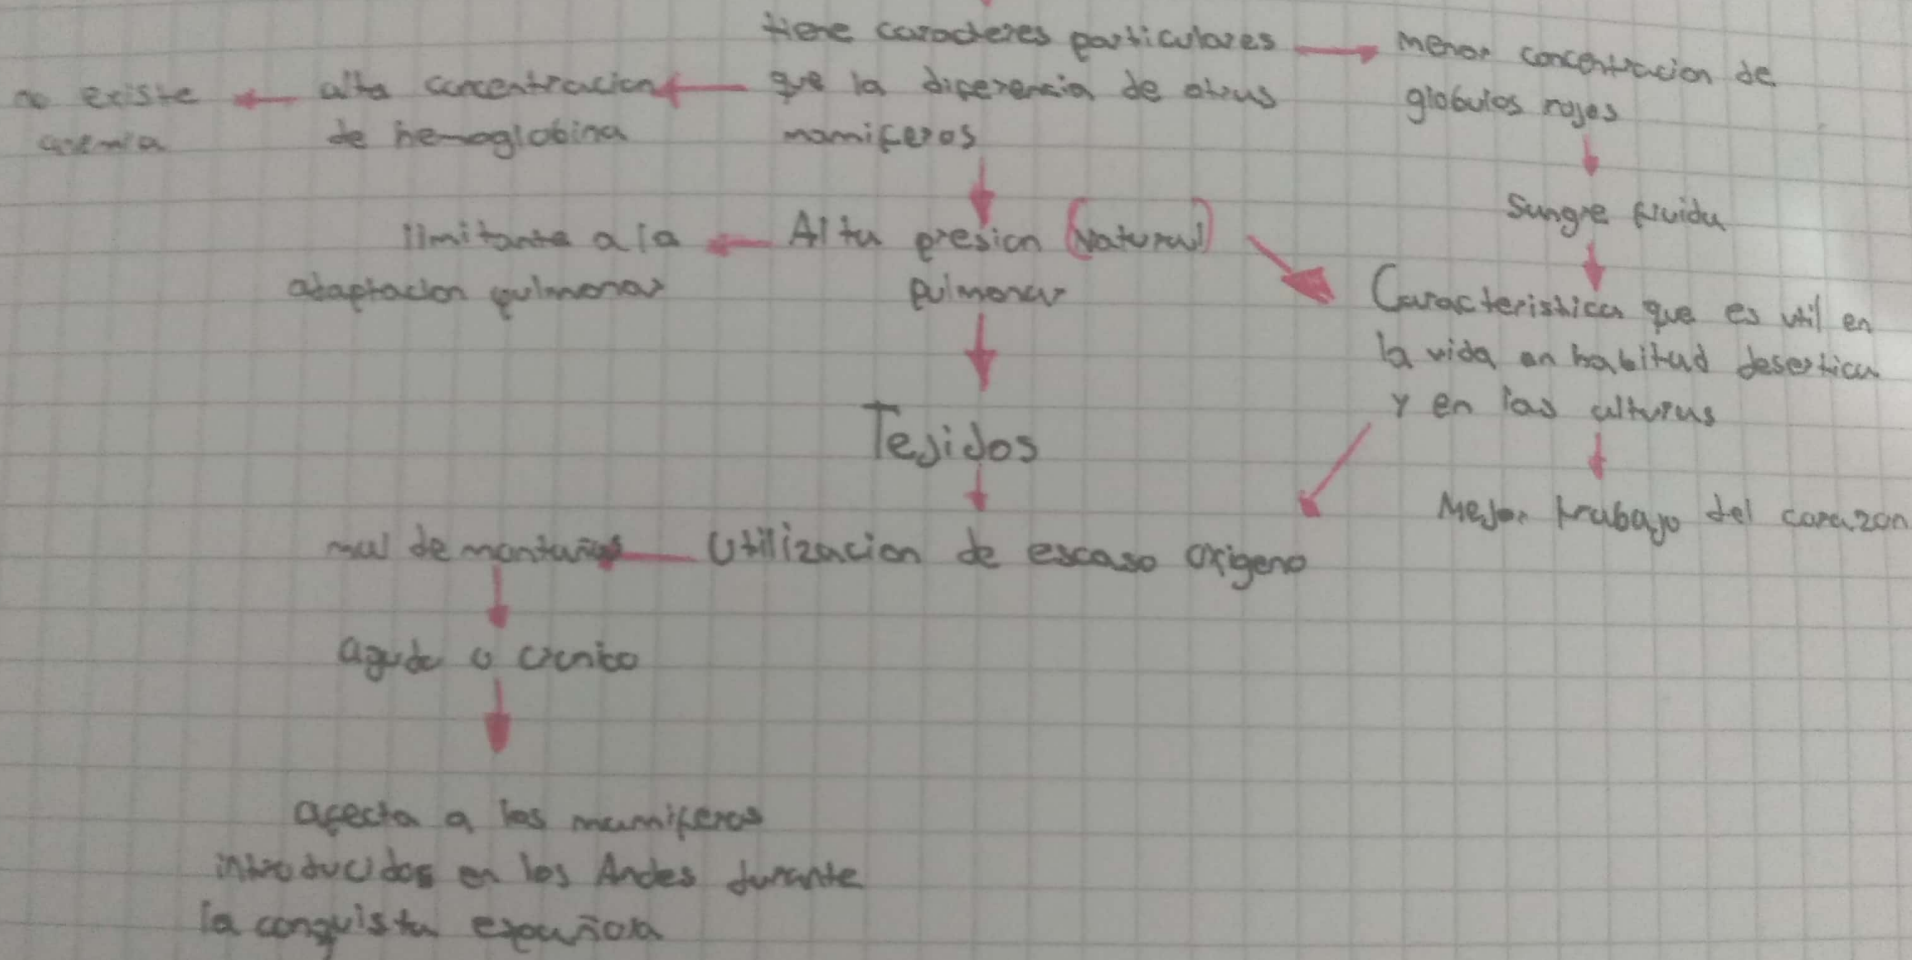 tiene caracteres particulares
que la diferencia de otros
mamiferos
menor concentracion de
globulos rojos
alta concentracion
de hemoglobina
no existe
anemia
Sangre fluida
Alta presion (Natural)
pulmonar
limitante a la
adaptacion pulmonar
Caracteristica que es util en
la vida en habitud desertica
y en las alturas
Tejidos
Mejor trabajo del corazon
Utilizacion de escaso oxigeno
mal de montañas
agudo o cronico
afecta a los mamiferos
introducidos en los Andes durante
la conquista española